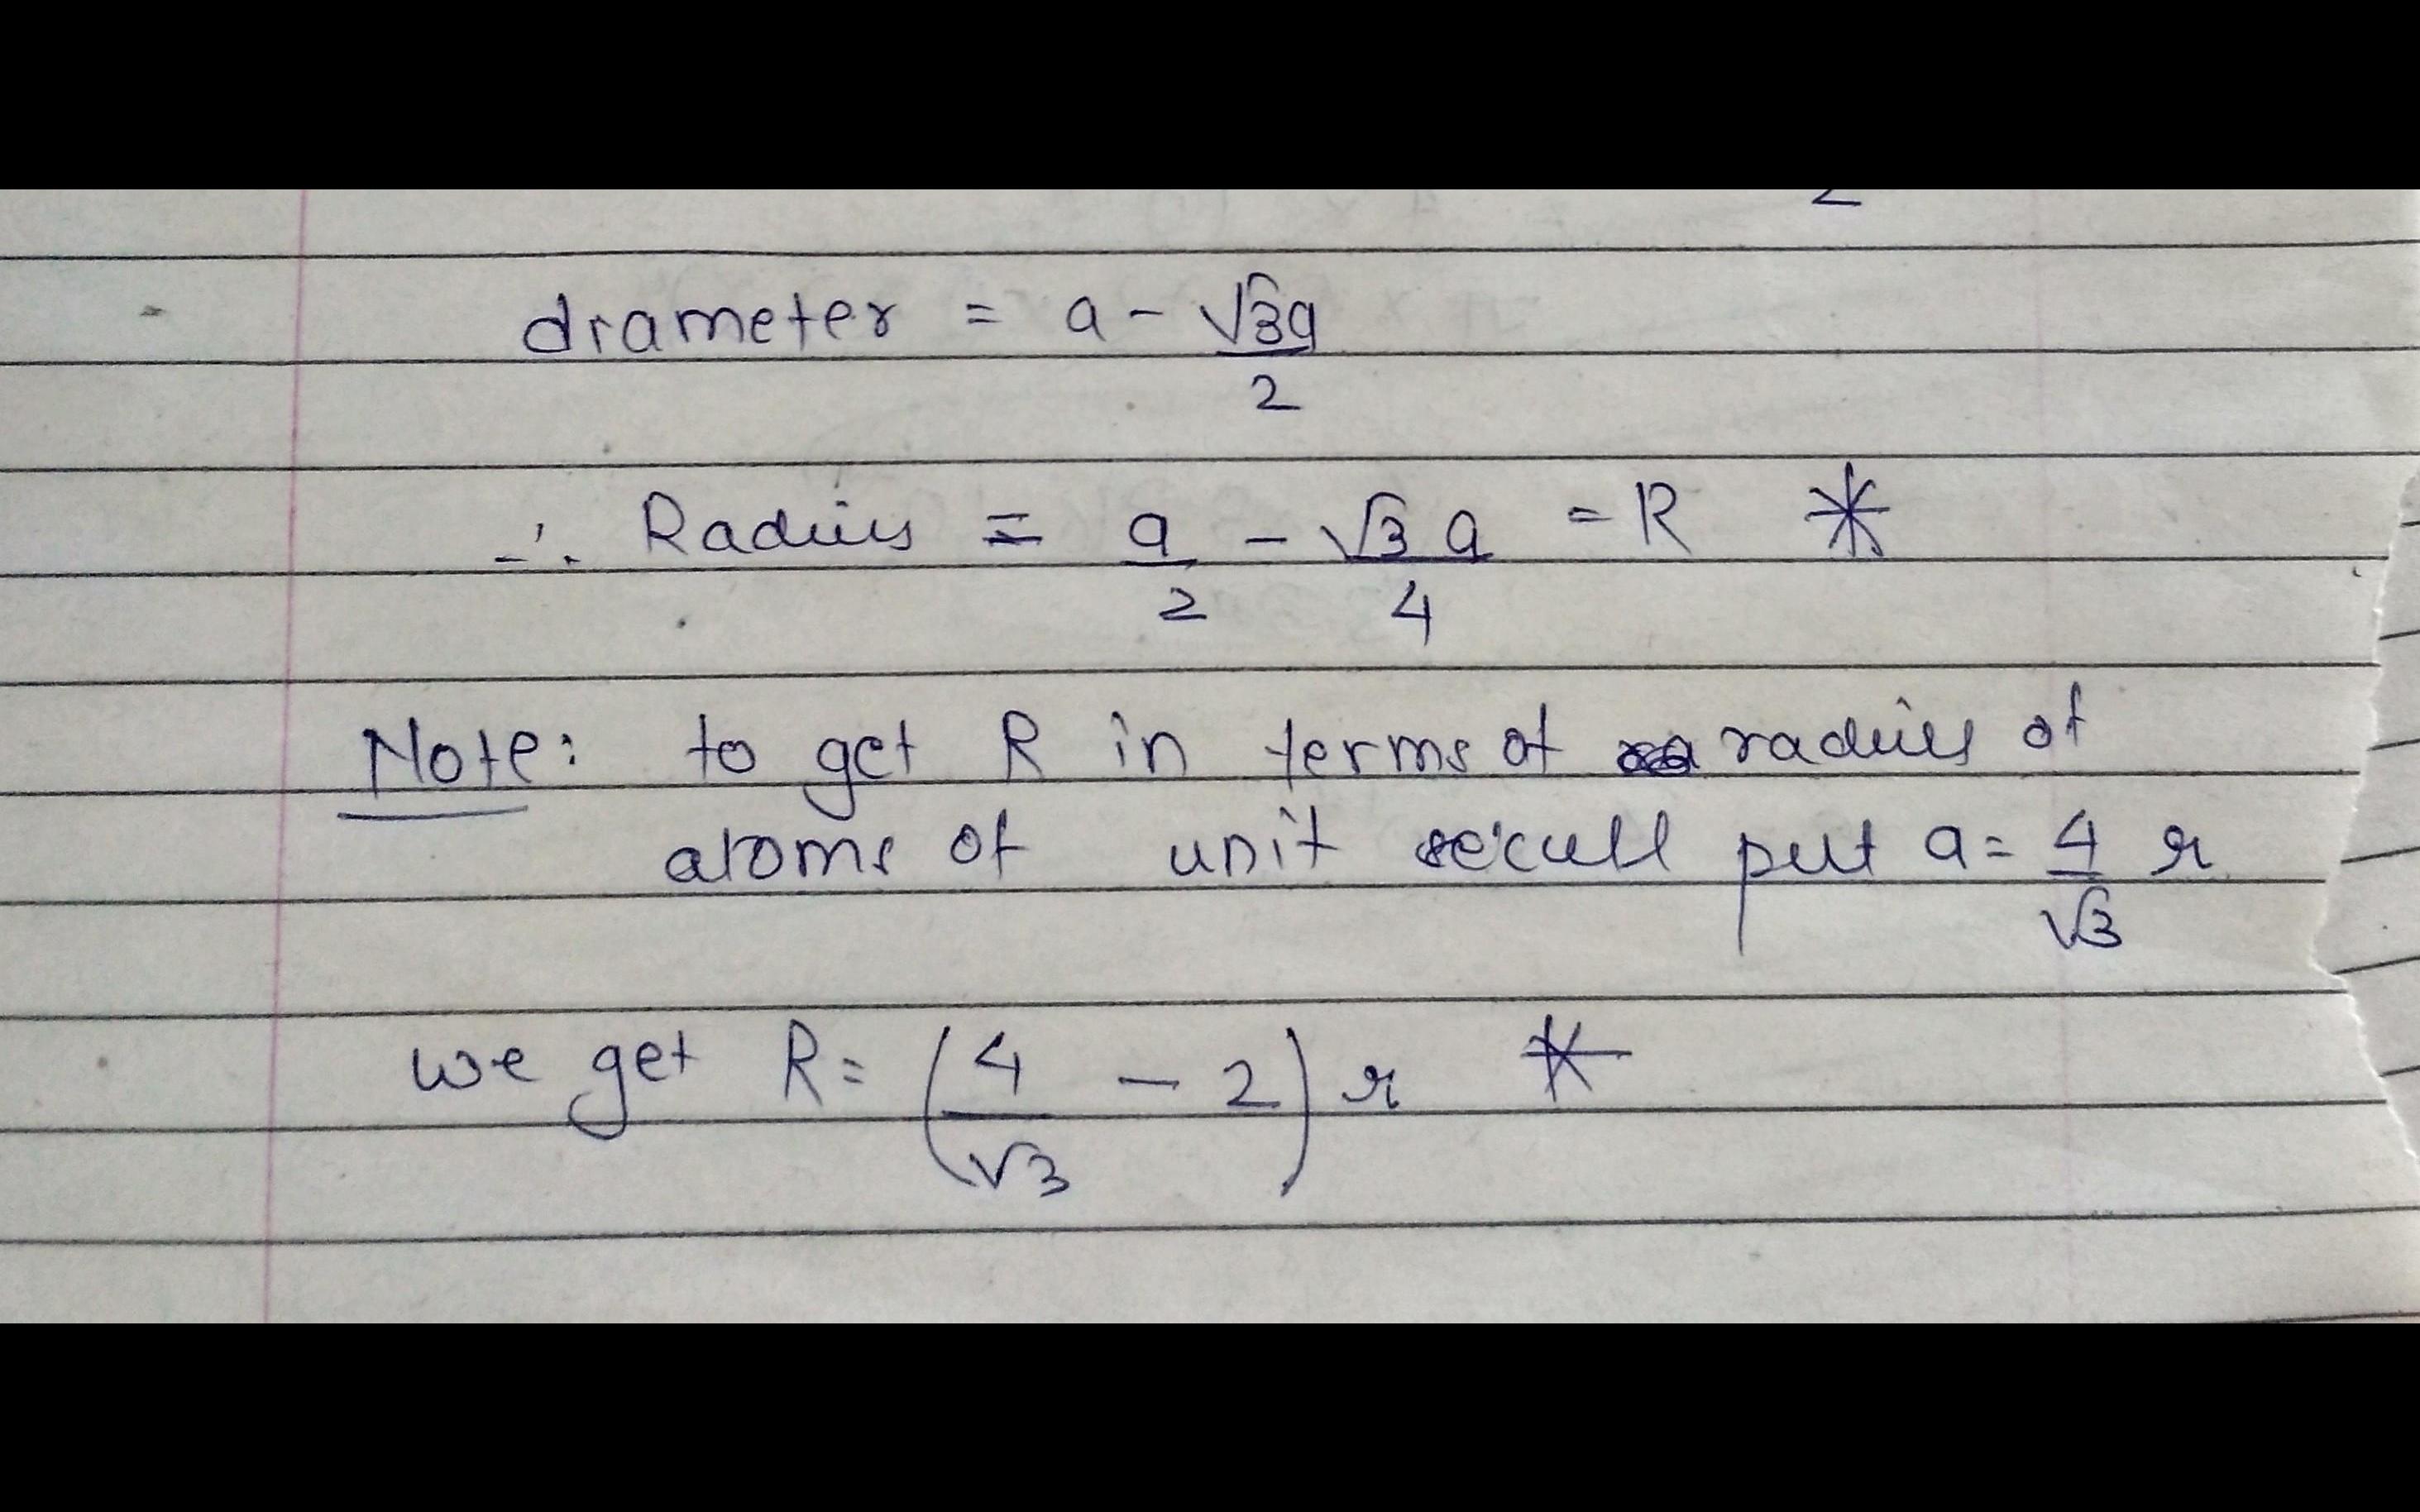 2
diameter = a - √3a/2
∴ Radius = a/2 - √3 a/4 = R *
Note: to get R in terms of radius of
atoms of unit cell put a = 4/√3 r
we get R = (4/√3 - 2) r *